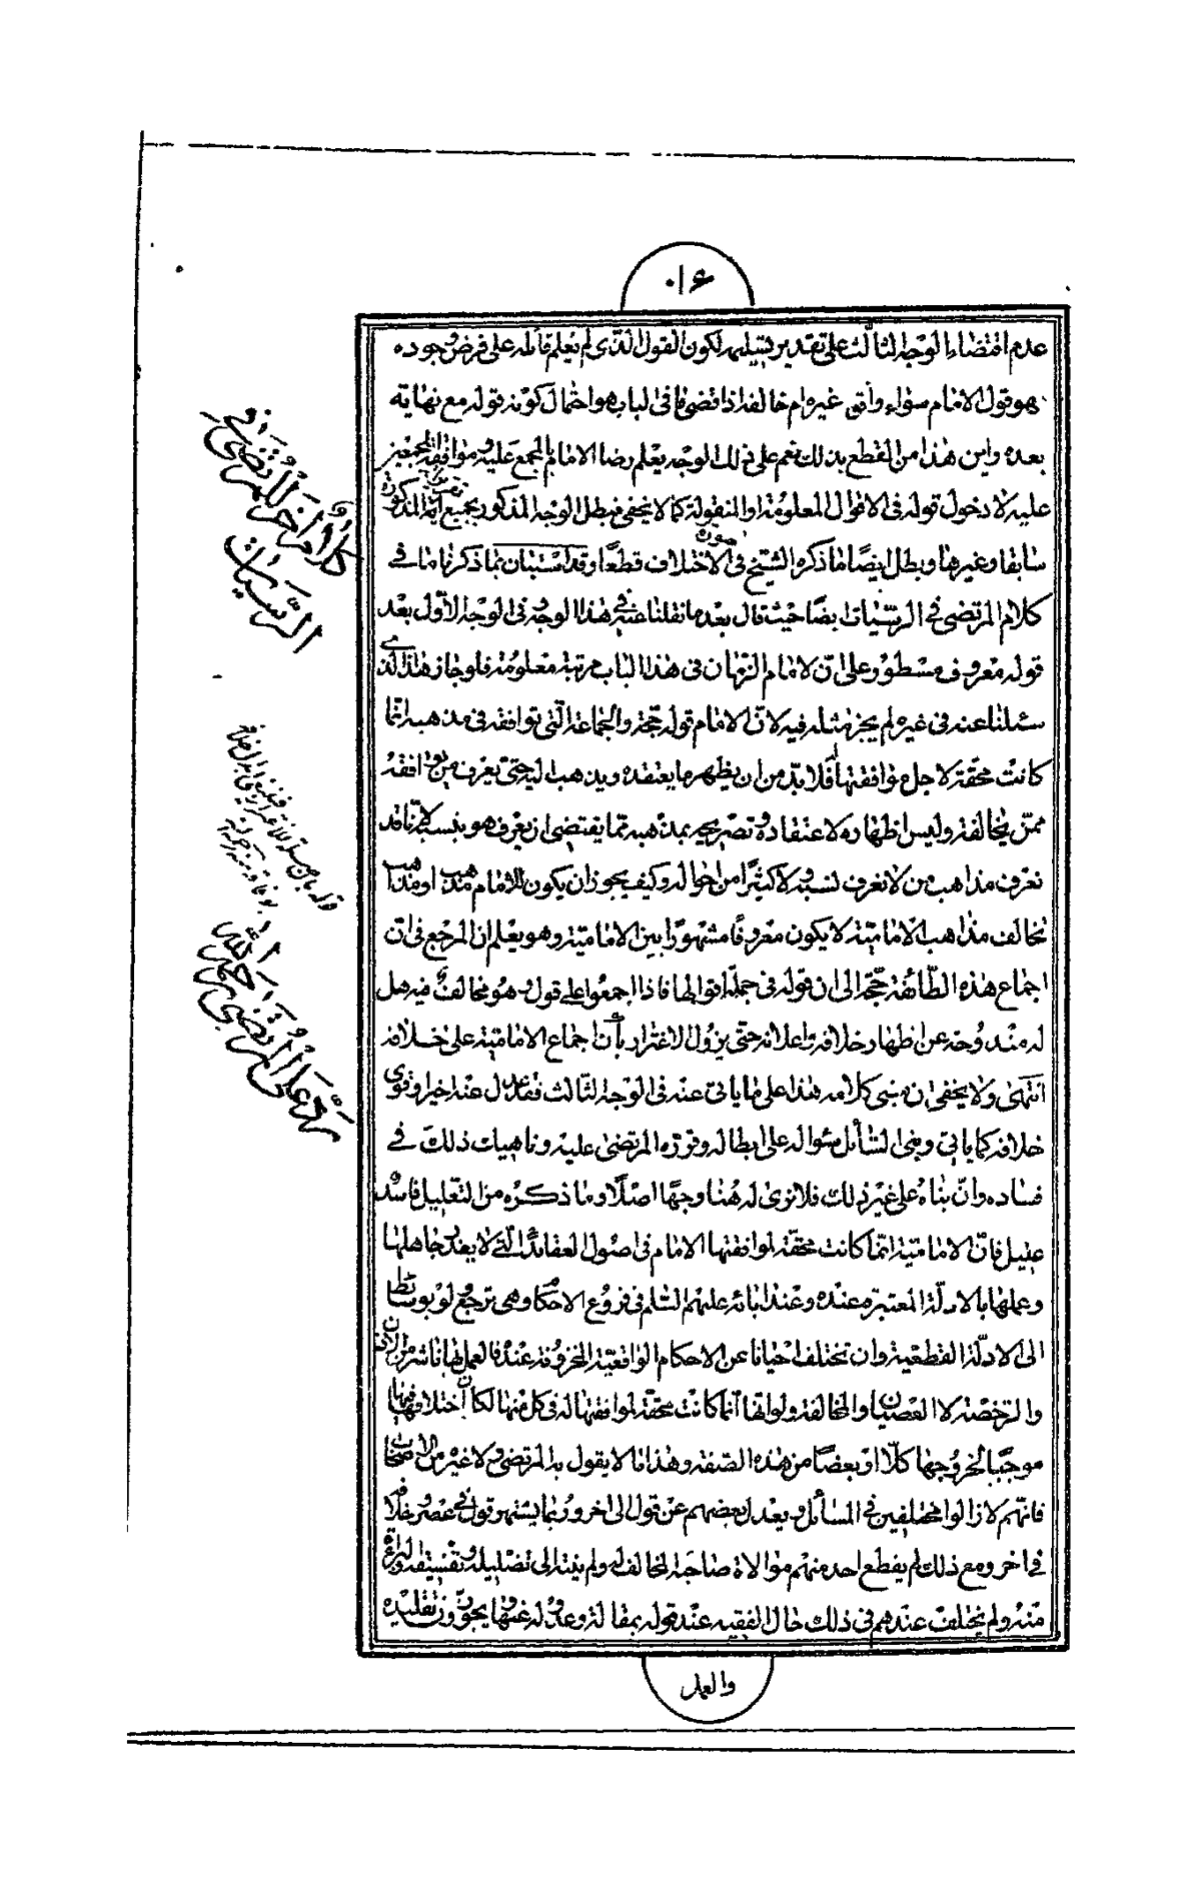 ٠١٤
عدم اقتضاء الوجه الثالث على تقدير تسليمه لكون القول الذي لم يعلم قائله على فرض وجوده
هو قول الامام سواء وافق غيره ام خالفه اذ اقصى ما في الباب هو احتمال كونه قوله مع نهاية
بعده واين هذا من القطع بذلك نعم على ذلك الوجه يعلم رضا الامام بالمجمع عليه وموافقة المجمعين
عليه لا دخول قوله في الاقوال المعلومة او المنقولة كما لا يخفى فبطل الوجه المذكور بجميع المذكورة
سابقا وغيرها وبطل ايضا ما ذكره الشيخ في صورة الاختلاف قطعا وقد استبان بما ذكرنا ما في
كلام المرتضى في الرسيات ايضا حيث قال بعد ما نقلنا عنه في هذا الوجه وفي الوجه الأول بعد
قوله معروف مسطور على ان لامام الزمان في هذا الباب مرتبة معلومة فلو جاز هذا الذي
سئلنا عنه في غيره لم يجز مثله فيه لان الامام قوله حجة والجماعة التي توافقه في مذهبه انما
كانت محقة لاجل موافقتها فلا بد من ان يظهر ما يعتقده ويذهب اليه حتى يعرف من يوافقه
ممن يخالفه وليس اظهاره لاعتقاده وتصريحه بمذهبه مما يقتضي ان يعرف هو بنسبه لانا قد
نعرف مذاهب من لا نعرف نسبه ولا كثيرا من احواله وكيف يجوز ان يكون للامام مذهب او مذاهب
تخالف مذاهب الامامية لا يكون معروفا مشهورا بين الامامية وهو يعلم ان المرجع في ان
اجماع هذه الطائفة حجة الى ان قوله في جملة اقوالها فاذا اجمعوا على قول وهو مخالف فيه هل
له مندوحة عن اظهار خلافه واعلانه حتى يزول الاغترار بان اجماع الامامية على خلافه
انتهى ولا يخفى انه بنى كلامه هذا على ما ياتي عنه في الوجه الثالث فقد عدل عنه اخيرا وقوى
خلافه كما ياتي وبنى السائل سئواله على ابطاله وقرره المرتضى عليه وناهيك ذلك في
فساده وان بناه على غير ذلك فلا نرى له هنا وجها اصلا وما ذكره من التعليل فاسد
عليل فان الامامية انما كانت محقة لموافقتها الامام في اصول العقائد التي لا يعذر جاهلها
وعملها بالادلة المعتبرة عنده وعند ابائه عليهم السلم في فروع الاحكام وهي ترجع لو بوسائط
الى الادلة القطعية وان تختلف احيانا عن الاحكام الواقعية المخزونة عنده فالعمل بها ناش من الاذن
والرخصة لا العصيان والمخالفة ولو انها انما كانت محقة لموافقتها له في كل منها لكان اختلافها فيها
موجبا لخروجها كلا او بعضا من هذه الصفة وهذا مما لا يقول به المرتضى ولا غيره من الاصحاب
فانهم لا زالوا مختلفين في المسائل ويعدل بعضهم عن قول الى اخر وربما يشتهر قول في عصر وخلافه
في اخر ومع ذلك لم يقطع احد منهم موالاة صاحبه المخالف له ولم ينته الى تضليله وتفسيقه والبراءة
منه ولم يختلف عندهم في ذلك حال الفقيه عند قوله بمقالة وعدوله عنها يجوزون تقليده
والعمل
كلام آخر للمرتضى في
الرسيات
رد على المرتضى